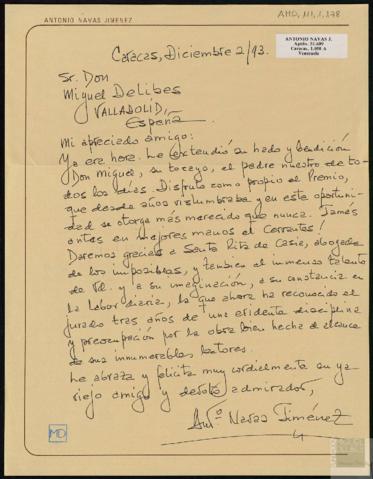 ANTONIO NAVAS JIMENEZ
AMD, 111, 1, 278
ANTONIO NAVAS J.
Aptdo. 51.689
Caracas, 1.050 A
Venezuela
Caracas, Diciembre 2/93.
Sr. Don
Miguel Delibes
VALLADOLID,
España
Mi apreciado amigo:
Ya era hora. Le extendió su hado y bendición
Don Miguel, su tocayo, el padre nuestro de to-
dos los días. Disfruto como propio el Premio,
que desde años vislumbraba y en esta oportuni-
dad se otorga más merecido que nunca. Jamás
antes en mejores manos el Cervantes!
Daremos gracias a Santa Rita de Casia, abogada
de los imposibles, y también al inmenso talento
de Vd. y a su imaginación, a su constancia en
la labor diaria, la que ahora ha reconocido el
jurado tras años de una evidente disciplina
y preocupación por la obra bien hecha al alcance
de sus innumerables lectores.
Le abraza y felicita muy cordialmente su ya
viejo amigo y devoto admirador,
Antº. Navas Jiménez
MD